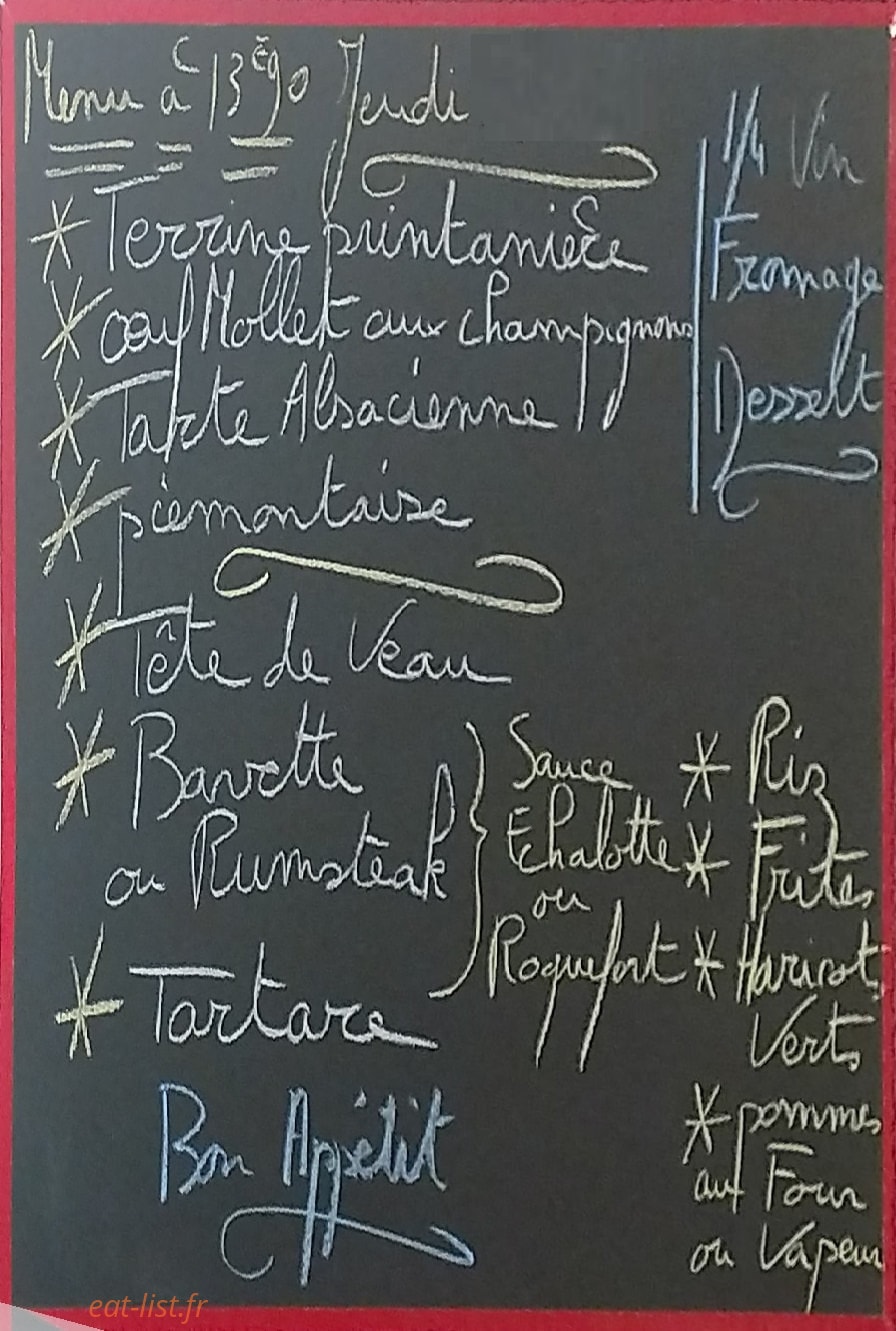 Menu à 13€90 Jeudi
* Terrine printanière
* oeuf Mollet aux champignons
* Tarte Alsacienne
* piemontaise
* Tête de Veau
* Bavette
ou Rumsteak
* Tartare
Bon Appétit
1/4 Vin
Fromage
Dessert
Sauce
Echalotte
ou
Roquefort
* Riz
* Frites
* Haricots
Verts
* pommes
au Four
ou Vapeur
eat-list.fr